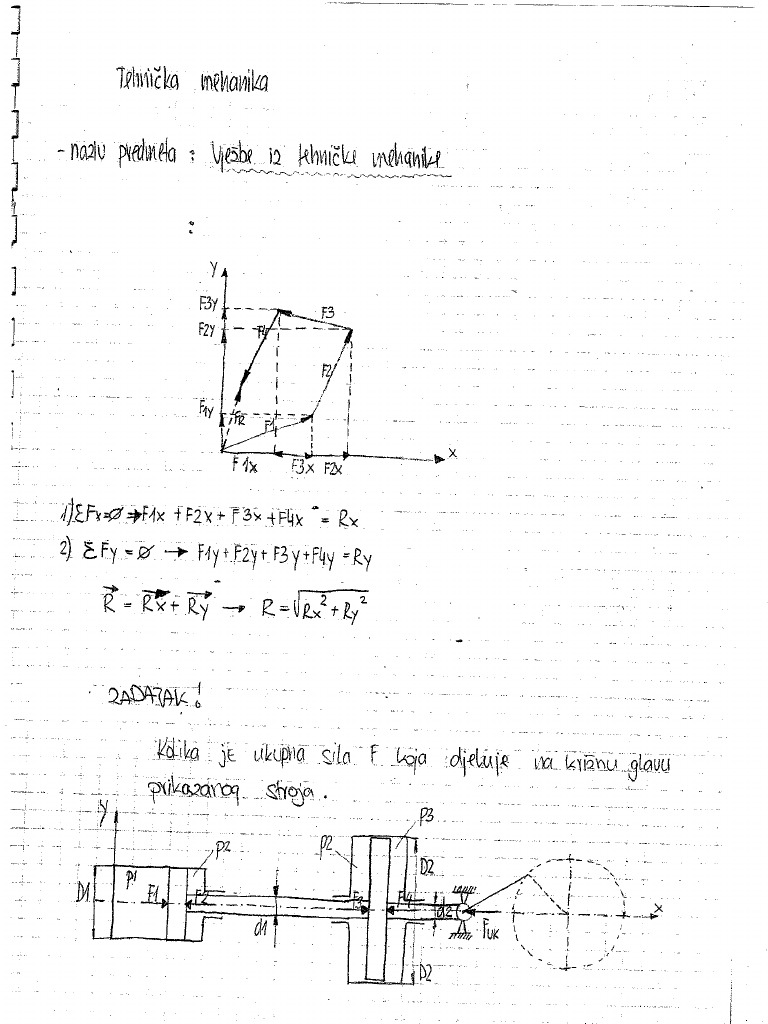 Tehnička mehanika
- naziv predmeta : Vježbe iz tehničke mehanike
:
y
F3y
F3
F2y
F4
F2
F1y
FR
F1
x
F1x F3x F2x
1) ΣFx=∅ → F1x + F2x + F3x + F4x = Rx
2) ΣFy=∅ → F1y + F2y + F3y + F4y = Ry
R = Rx + Ry → R = √Rx² + Ry²
ZADATAK!
Kolika je ukupna sila F koja djeluje na križnu glavu
prikazanog stroja.
y
p3
p2 p2
D2
p1
D1 F1 F2 F3 F4 d2 x
d1 Fuk
D2